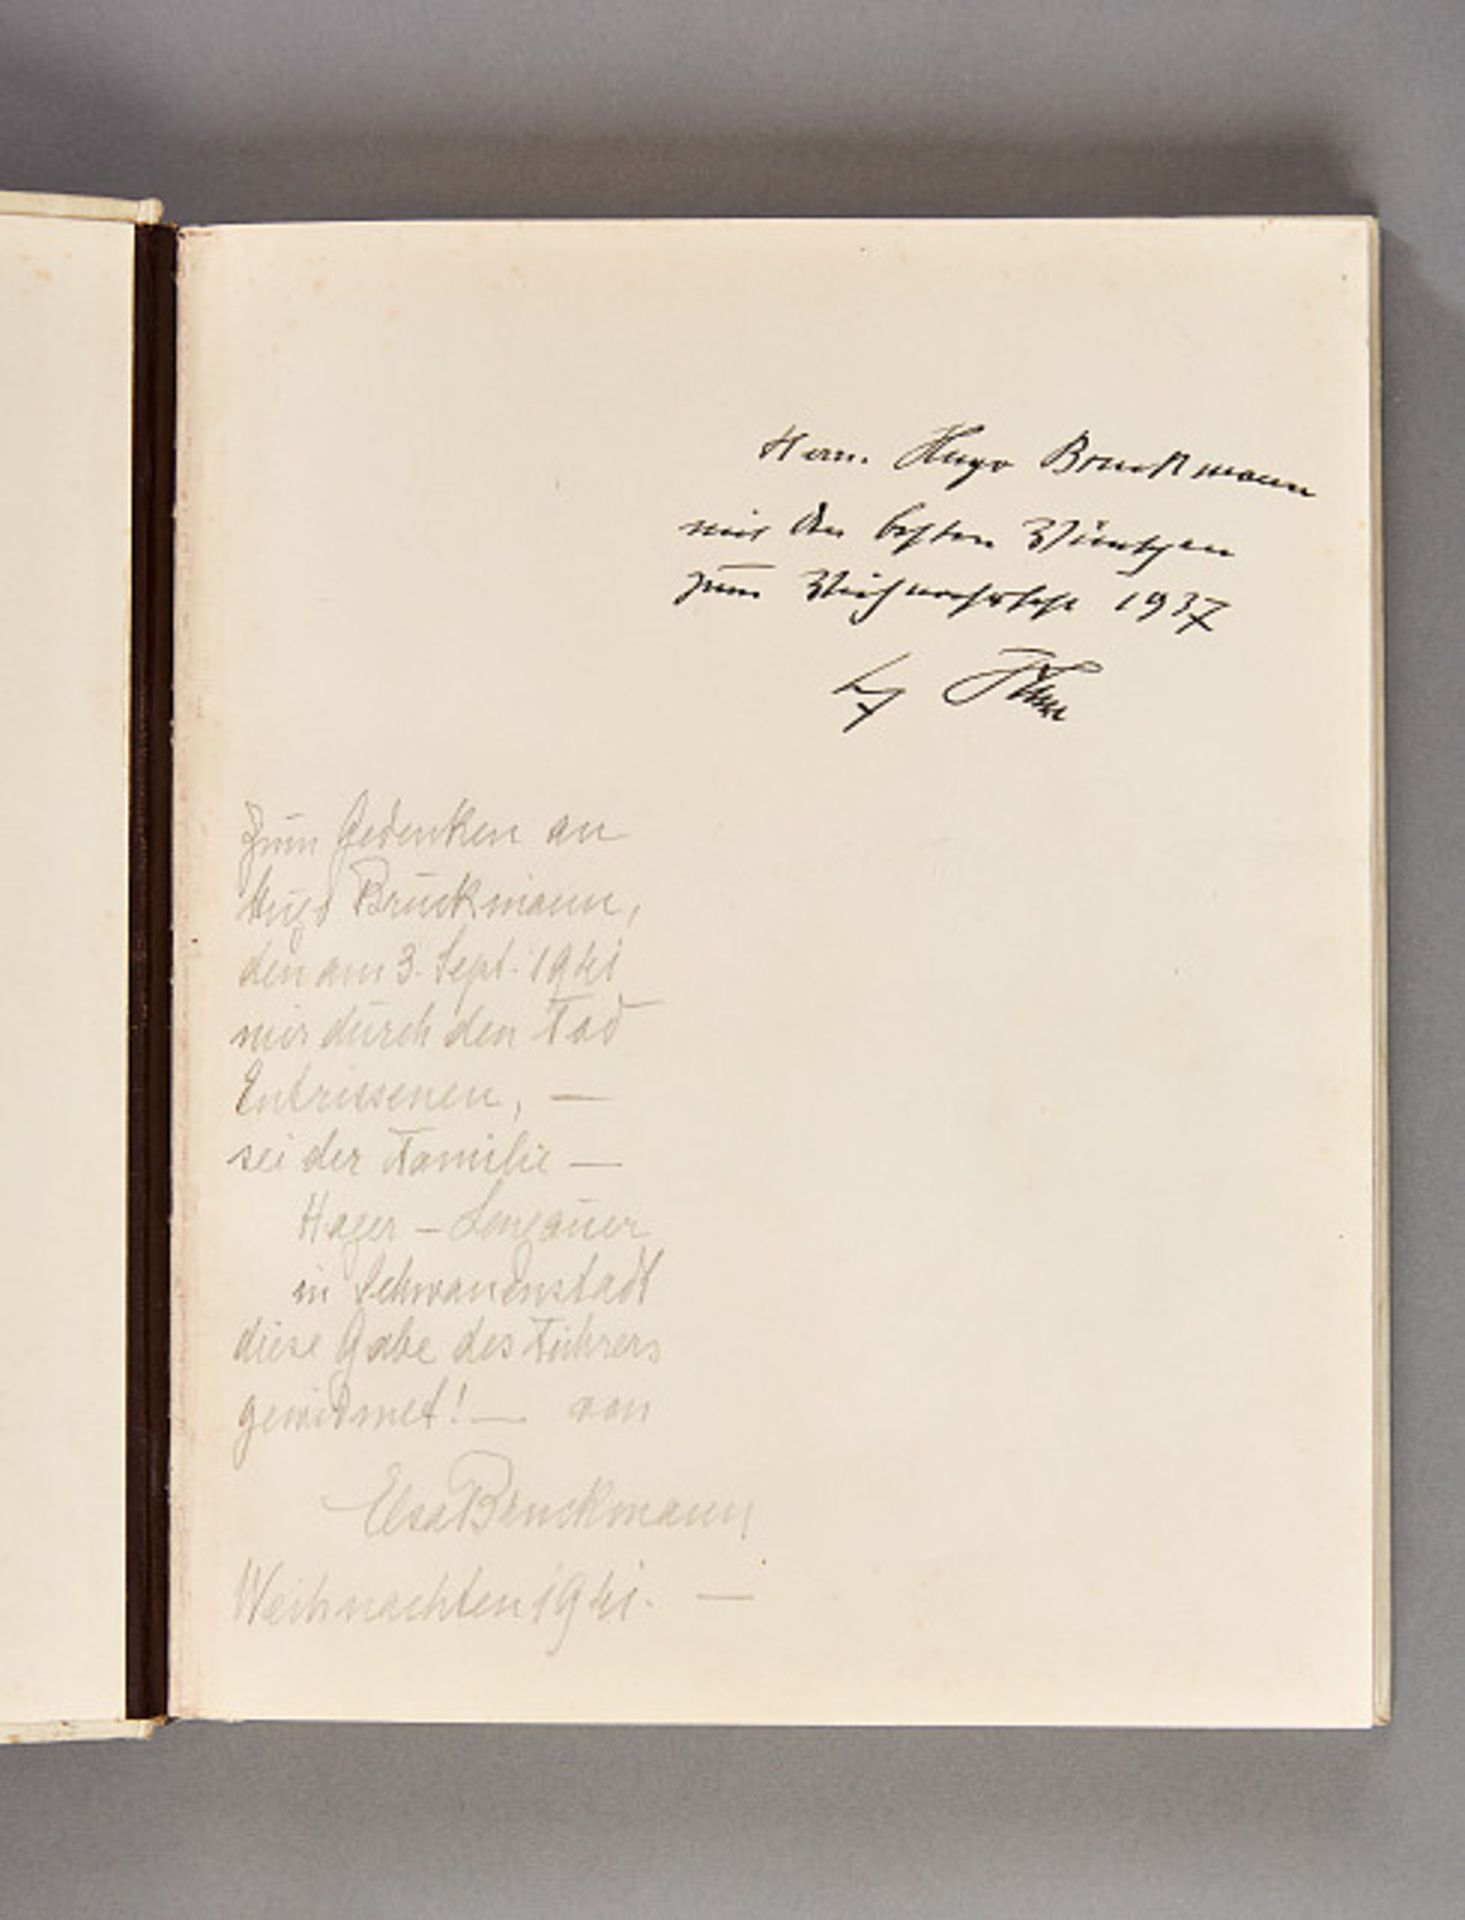 Herrn Hugo Bruckmann
mit den besten Wünschen
zum Weihnachtsfest 1937
Zum Gedenken an
Hugo Bruckmann,
den am 3. Sept. 1941
mir durch den Tod
Entrissenen, —
sei der Familie —
Hager – Lengauer
in Schwanenstadt
diese Gabe des Führers
gewidmet! — von
Elsa Bruckmann
Weihnachten 1941. —